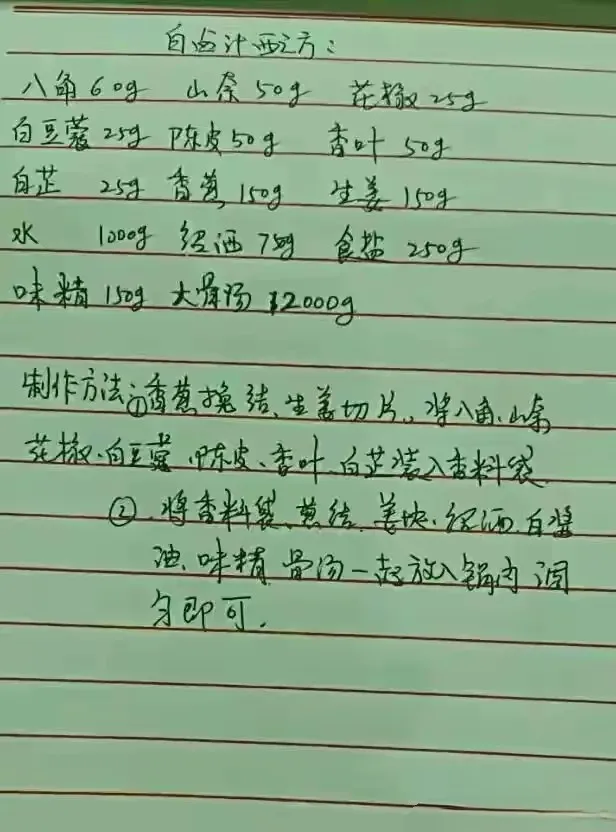 白卤汁配方：
八角60g 山奈50g 花椒25g
白豆蔻25g 陈皮50g 香叶50g
白芷 25g 香葱150g 生姜150g
水 1000g 红酒75g 食盐 250g
味精150g 大骨汤12000g
制作方法：①香葱挽结、生姜切片、将八角、山奈
花椒、白豆蔻、陈皮、香叶、白芷装入香料袋
②、将香料袋、葱结、姜块、红酒、白酱
油、味精、骨汤一起放入锅内调
匀即可.